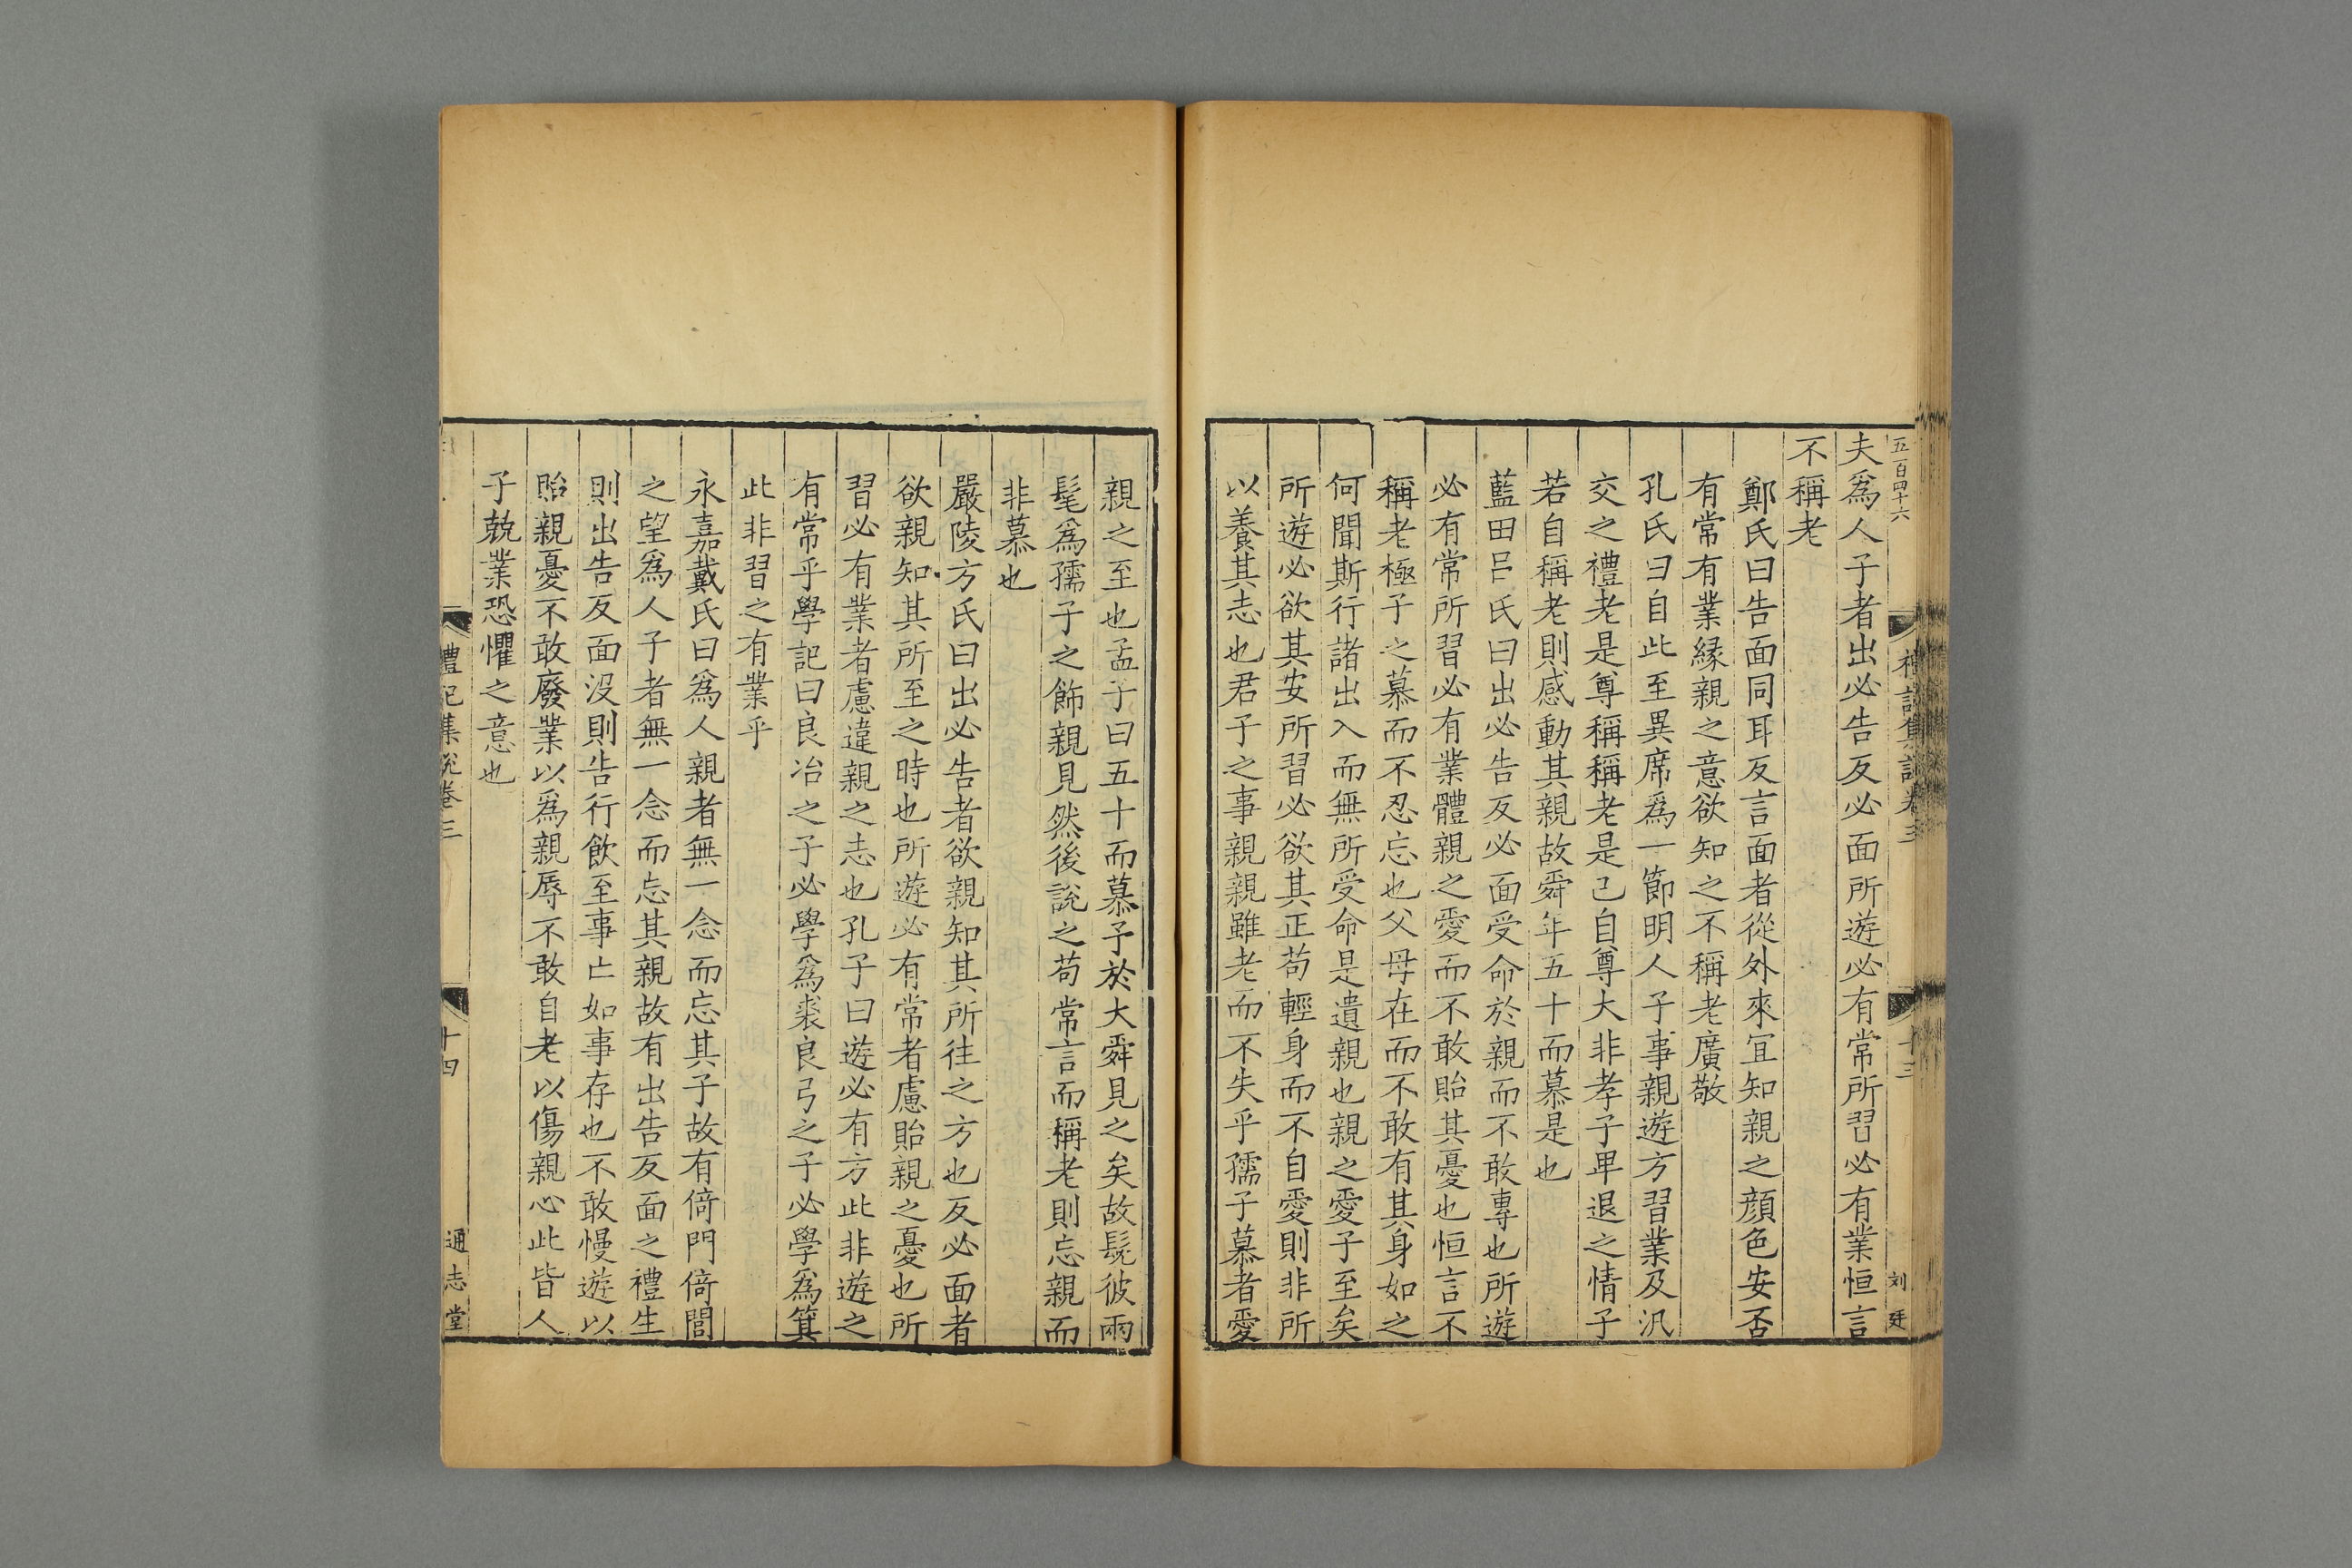 五百四十六
禮記集說卷三
十三
刘廷
夫爲人子者出必告反必面所遊必有常所習必有業恒言
不稱老
鄭氏曰告面同耳反言面者從外來宜知親之顔色安否
有常有業縁親之意欲知之不稱老廣敬
孔氏曰自此至異席爲一節明人子事親遊方習業及汎
交之禮老是尊稱稱老是己自尊大非孝子卑退之情子
若自稱老則感動其親故舜年五十而慕是也
藍田呂氏曰出必告反必面受命於親而不敢專也所遊
必有常所習必有業體親之愛而不敢貽其憂也恒言不
稱老極子之慕而不忍忘也父母在而不敢有其身如之
何聞斯行諸出入而無所受命是遺親也親之愛子至矣
所遊必欲其安所習必欲其正苟輕身而不自愛則非所
以養其志也君子之事親親雖老而不失乎孺子慕者愛
親之至也孟子曰五十而慕予於大舜見之矣故髧彼兩
髦爲孺子之飾親見然後說之苟常言而稱老則忘親而
非慕也
嚴陵方氏曰出必告者欲親知其所往之方也反必面者
欲親知其所至之時也所遊必有常者慮貽親之憂也所
習必有業者慮違親之志也孔子曰遊必有方此非遊之
有常乎學記曰良冶之子必學爲裘良弓之子必學爲箕
此非習之有業乎
永嘉戴氏曰爲人親者無一念而忘其子故有倚門倚閭
之望爲人子者無一念而忘其親故有出告反面之禮生
則出告反面沒則告行飮至事亡如事存也不敢慢遊以
貽親憂不敢廢業以爲親辱不敢自老以傷親心此皆人
子兢業恐懼之意也
禮記集說卷三
十四
通志堂